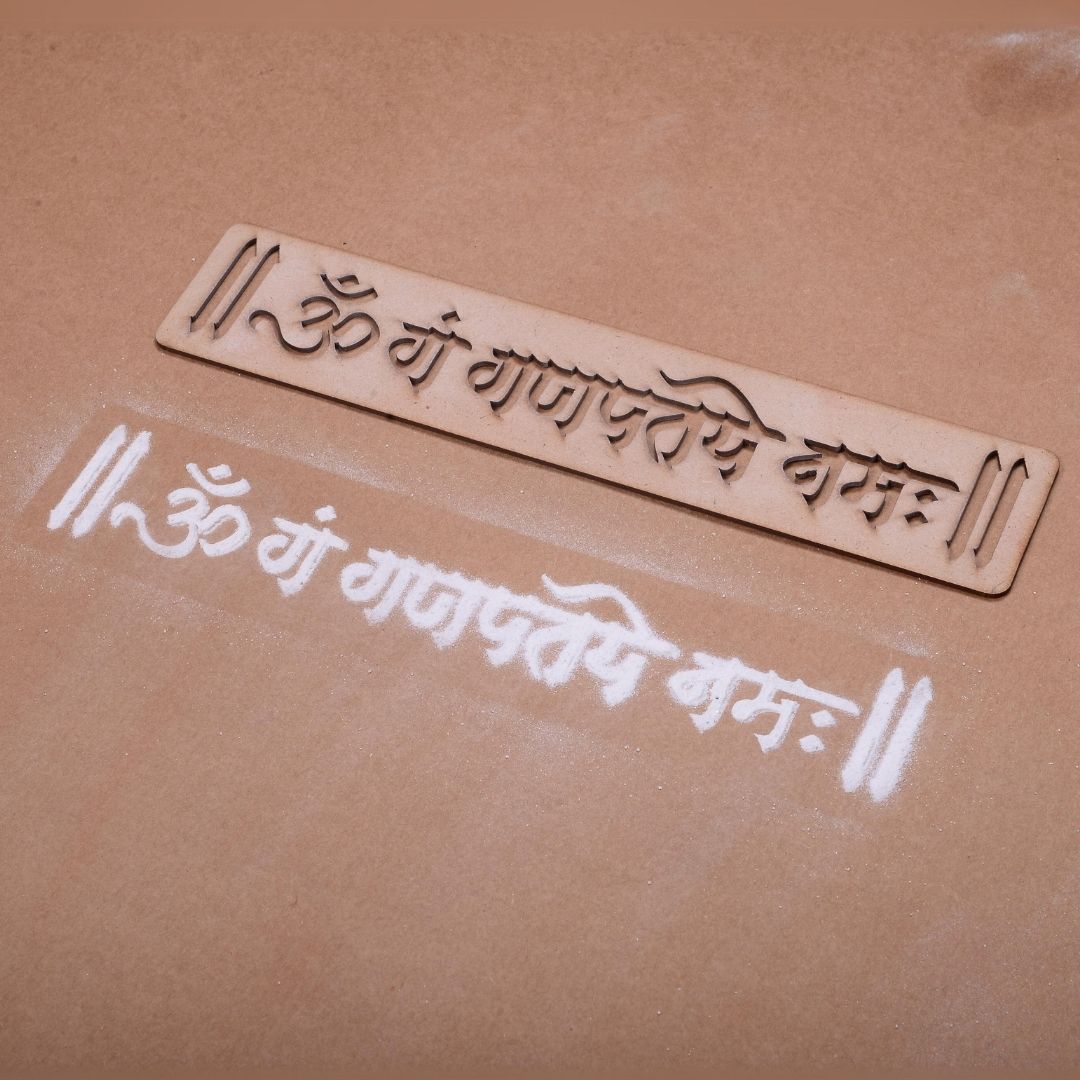 ॥ ॐ गं गणपतये नमः ॥
॥ ॐ गं गणपतये नमः ॥